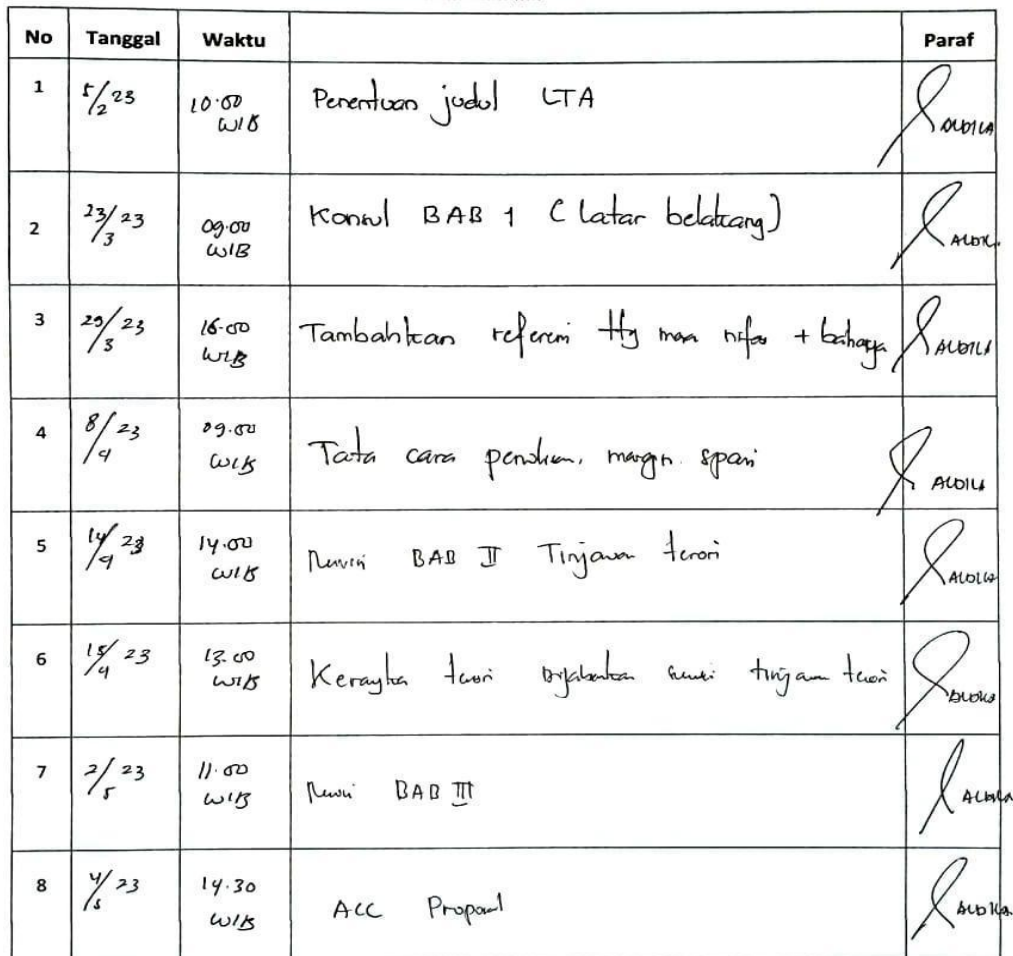 No Tanggal Waktu Paraf
1 5/2 23 10.00 WIB Penentuan judul LTA ALDILA
2 23/3 23 09.00 WIB Konsul BAB 1 (latar belakang) ALDILA
3 29/3 23 16.00 WIB Tambahkan referensi ttg masa nifas + bahaya ALDILA
4 8/4 23 09.00 WIB Tata cara penulisan, margin, spasi ALDILA
5 14/4 23 14.00 WIB Revisi BAB II Tinjauan teori ALDILA
6 15/4 23 13.00 WIB Kerangka teori sesuai tinjauan teori ALDILA
7 2/5 23 11.00 WIB Revisi BAB III ALDILA
8 4/5 23 14.30 WIB ACC Proposal ALDILA